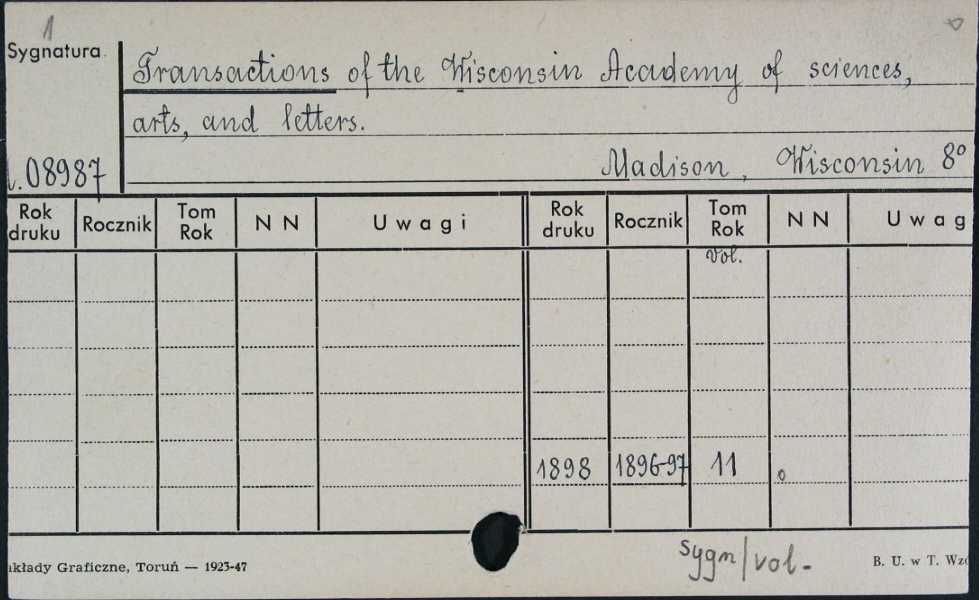 1
Sygnatura
Transactions of the Wisconsin Academy of sciences,
arts, and letters.
08987
Madison, Wisconsin 8°
Rok druku Rocznik Tom Rok N N Uwagi Rok druku Rocznik Tom Rok N N Uwag
vol.
1898 1896-97 11
sygn/vol-
kłady Graficzne, Toruń — 1923-47
B. U. w T. Wzó